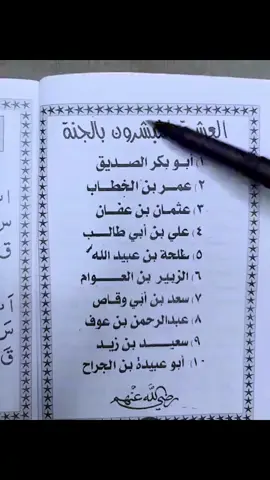 العشرة المبشرون بالجنة
١) أبو بكر الصديق
٢) عمر بن الخطاب
٣) عثمان بن عفان
٤) علي بن أبي طالب
٥) طلحة بن عبيد الله
٦) الزبير بن العوام
٧) سعد بن أبي وقاص
٨) عبدالرحمن بن عوف
٩) سعيد بن زيد
١٠) أبو عبيدة بن الجراح
رضي الله عنهم